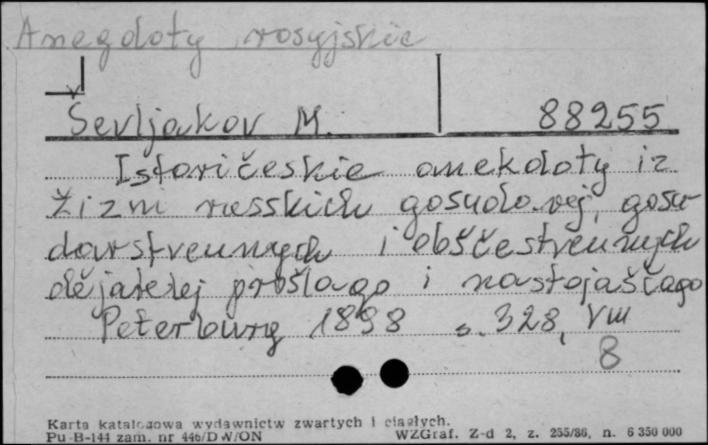 Anegdoty rosyjskie
Ševljakov M. 88255
Istoričeskie anekdoty iz
žizni russkich gosudarej, gosu
darstvennych i obščestvennych
dějatelej prošlago i nastojaščago
Peterburg 1898 s. 328, VIII
8
Karta katalogowa wydawnictw zwartych i ciągłych.
Pu-B-144 zam. nr 446/DW/ON WZGraf. Z-d 2, z. 255/86, n. 6 350 000